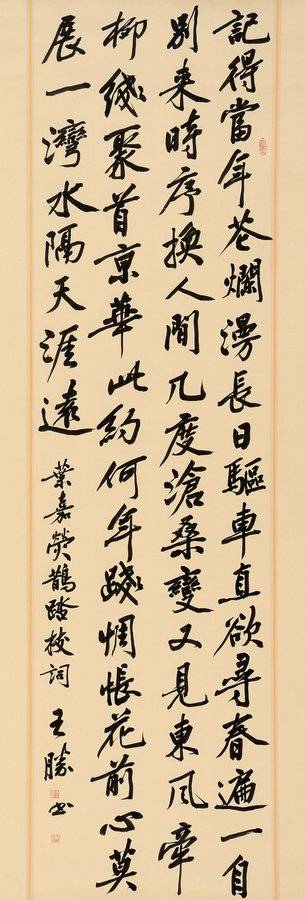 記得當年花爛漫長日驅車直欲尋春遍一自
別來時序換人間几度滄桑變又見東風牽
柳綫聚首京華此約何年踐惆悵花前心莫
展一灣水隔天涯遠
葉嘉瑩鵲踏枝詞 王勝書